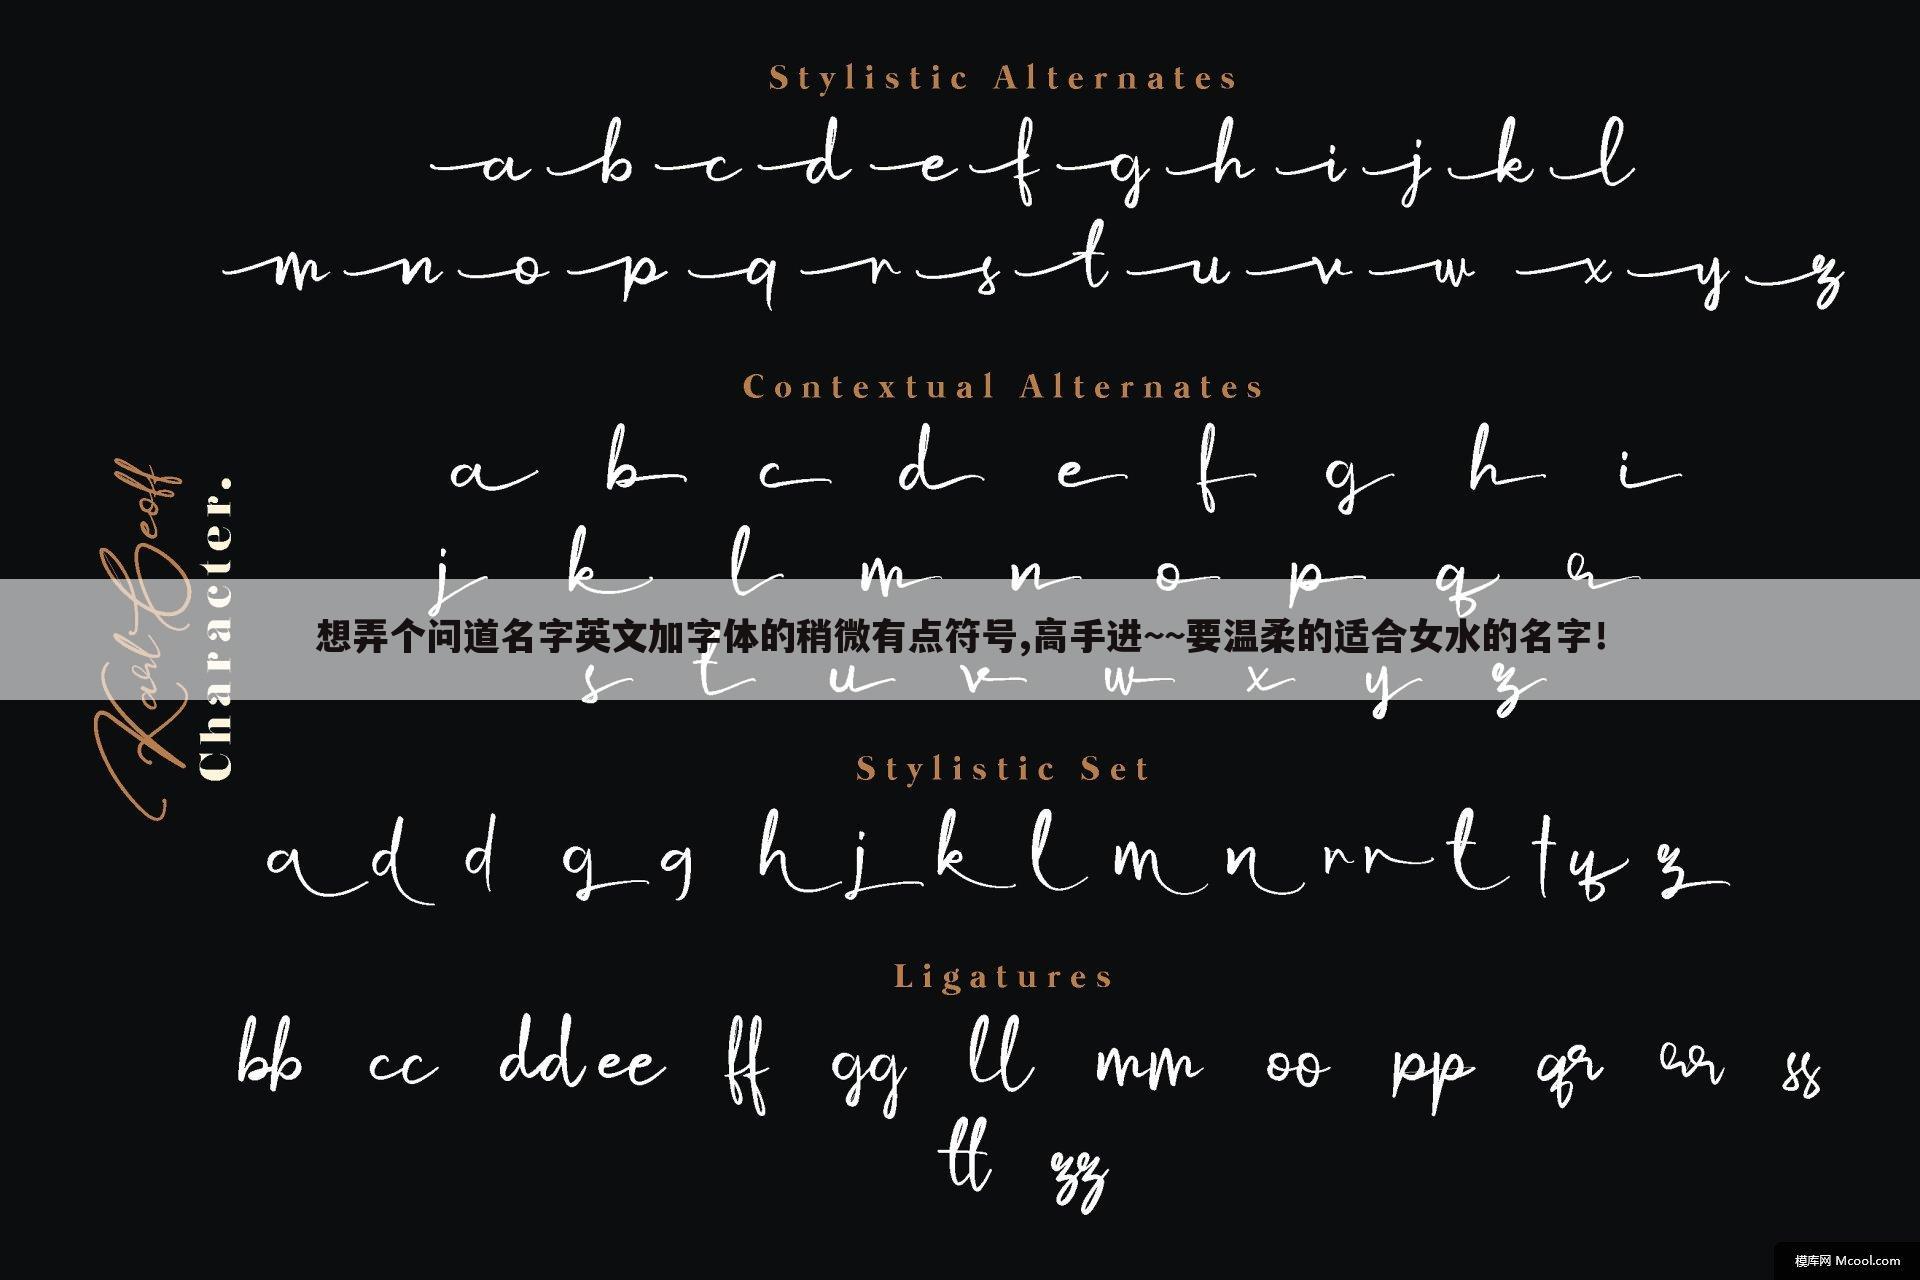 Stylistic Alternates
a b c d e f g h i j k l
m n o p q r s t u v w x y z
Contextual Alternates
a b c d e f g h i
j k l m n o p q r
想弄个问道名字英文加字体的稍微有点符号,高手进~~要温柔的适合女水的名字!
s t u v w x y z
Karl Geoff
Character.
Stylistic Set
a d d g g h j k l m n r r t t q z
Ligatures
bb cc dd ee ff gg ll mm oo pp qr rr ss
tt zz
模库网 Mcool.com